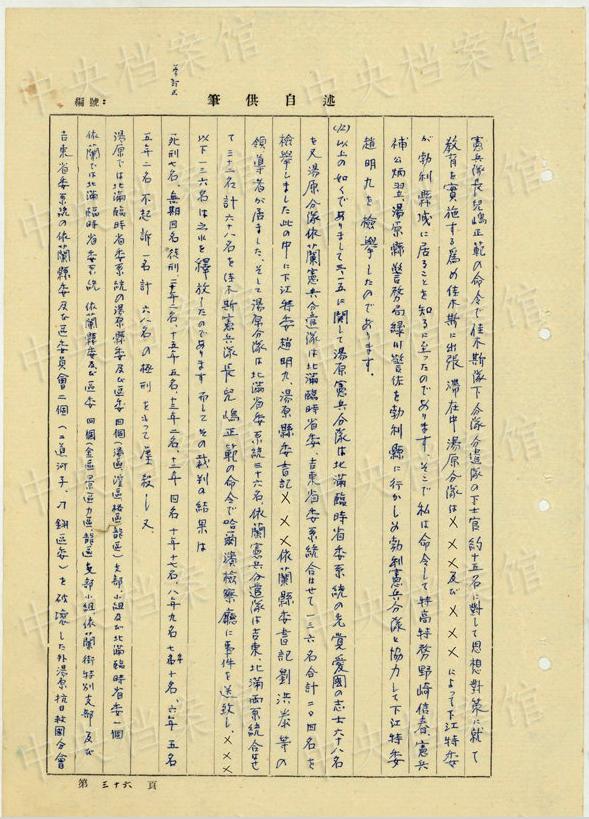 編號：
筆供自述
憲兵隊長児嶋正範の命令で佳木斯隊下分隊分遣隊の下士官約十五名に対して思想対策に就て
教育を実施する為め佳木斯に出張滞在中湯原分隊は×××及び×××によって下江特委
が勃利縣城に居ることを知るに至ったのであります。そこで私は命令して特高特務野崎信春、憲兵
補公炳翌、湯原縣警務局緑川警佐を勃利縣に行かしめ勃利憲兵分隊と協力して下江特委
趙明九を検挙したのであります。
(12)以上の如くでありまして三・一五に関して湯原憲兵分隊は北満臨時省委系統の共党愛国の志士六十八名
を又湯原分隊依蘭憲兵分遣隊は北満臨時省委、吉東省委系統合はせて一三六名合計二〇四名を
検挙しました此の中に下江特委趙明九、湯原縣委書記×××依蘭縣委書記劉洪泰等の
領導者が居ました、そして湯原分隊は北満省委系統三十六名依蘭憲兵分遣隊は吉東、北満両系統合はせ
て三十二名計六十八名を佳木斯憲兵隊長児嶋正範の命令で哈爾濱検察廳に事件を送致し、×××
以下一三六名は之れを釋放したのであります 而してその裁判の結果は
死刑七名、無期四名徒刑二十年一名、十五年五名十三年二名、十二年四名十年十七名、八年九名七年十名、六年五名
五年二名不起訴一名計六八名の極刑を以って屠殺し又
湯原では北満臨時省委系統の湯原縣委及び区委四個 支部、小組及び北満臨時省委一個
依蘭では北満臨時省委系統 依蘭縣委及び区委四個 支部小組、依蘭街特別支部及び
吉東省委系統の依蘭縣委及び区委員會二個（二道河子、刁翎区委）を破壊した外湯原抗日救国分會
第三十六頁
中央档案馆